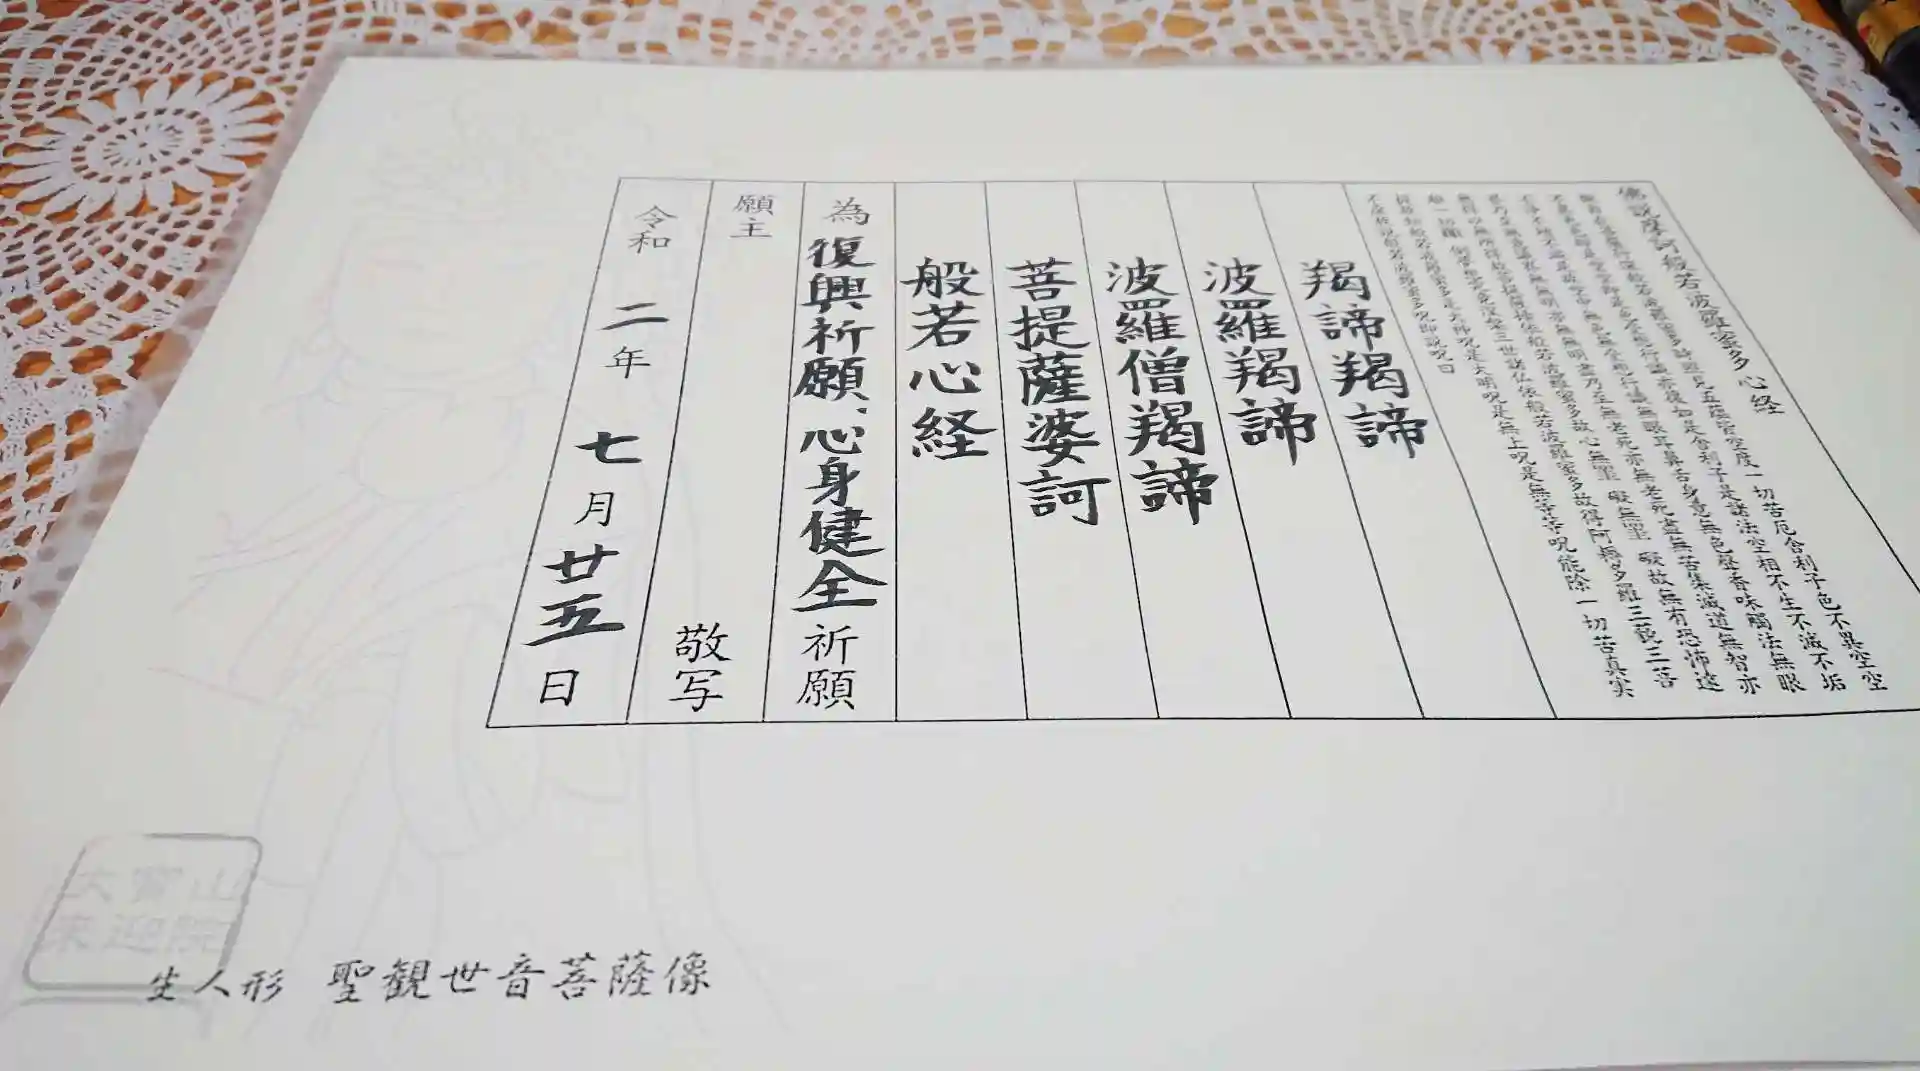 佛説摩訶般若波羅蜜多心経
観自在菩薩行深般若波羅蜜多時照見五蘊皆空度一切苦厄舎利子色不異空空
不異色色即是空空即是色受想行識亦復如是舎利子是諸法空相不生不滅不垢
不浄不増不減是故空中無色無受想行識無眼耳鼻舌身意無色聲香味觸法無眼
界乃至無意識界無無明亦無無明盡乃至無老死亦無老死盡無苦集滅道無智亦
無得以無所得故菩提薩埵依般若波羅蜜多故心無罣礙無罣礙故無有恐怖遠
離一切顛倒夢想究竟涅槃三世諸仏依般若波羅蜜多故得阿耨多羅三藐三菩
提故知般若波羅蜜多是大神呪是大明呪是無上呪是無等等呪能除一切苦真実
不虚故説般若波羅蜜多呪即説呪曰
羯諦羯諦
波羅羯諦
波羅僧羯諦
菩提薩婆訶
般若心経
為復興祈願、心身健全祈願
願主 敬写
令和二年七月廿五日
大寳山
来迎院
生人形 聖観世音菩薩像